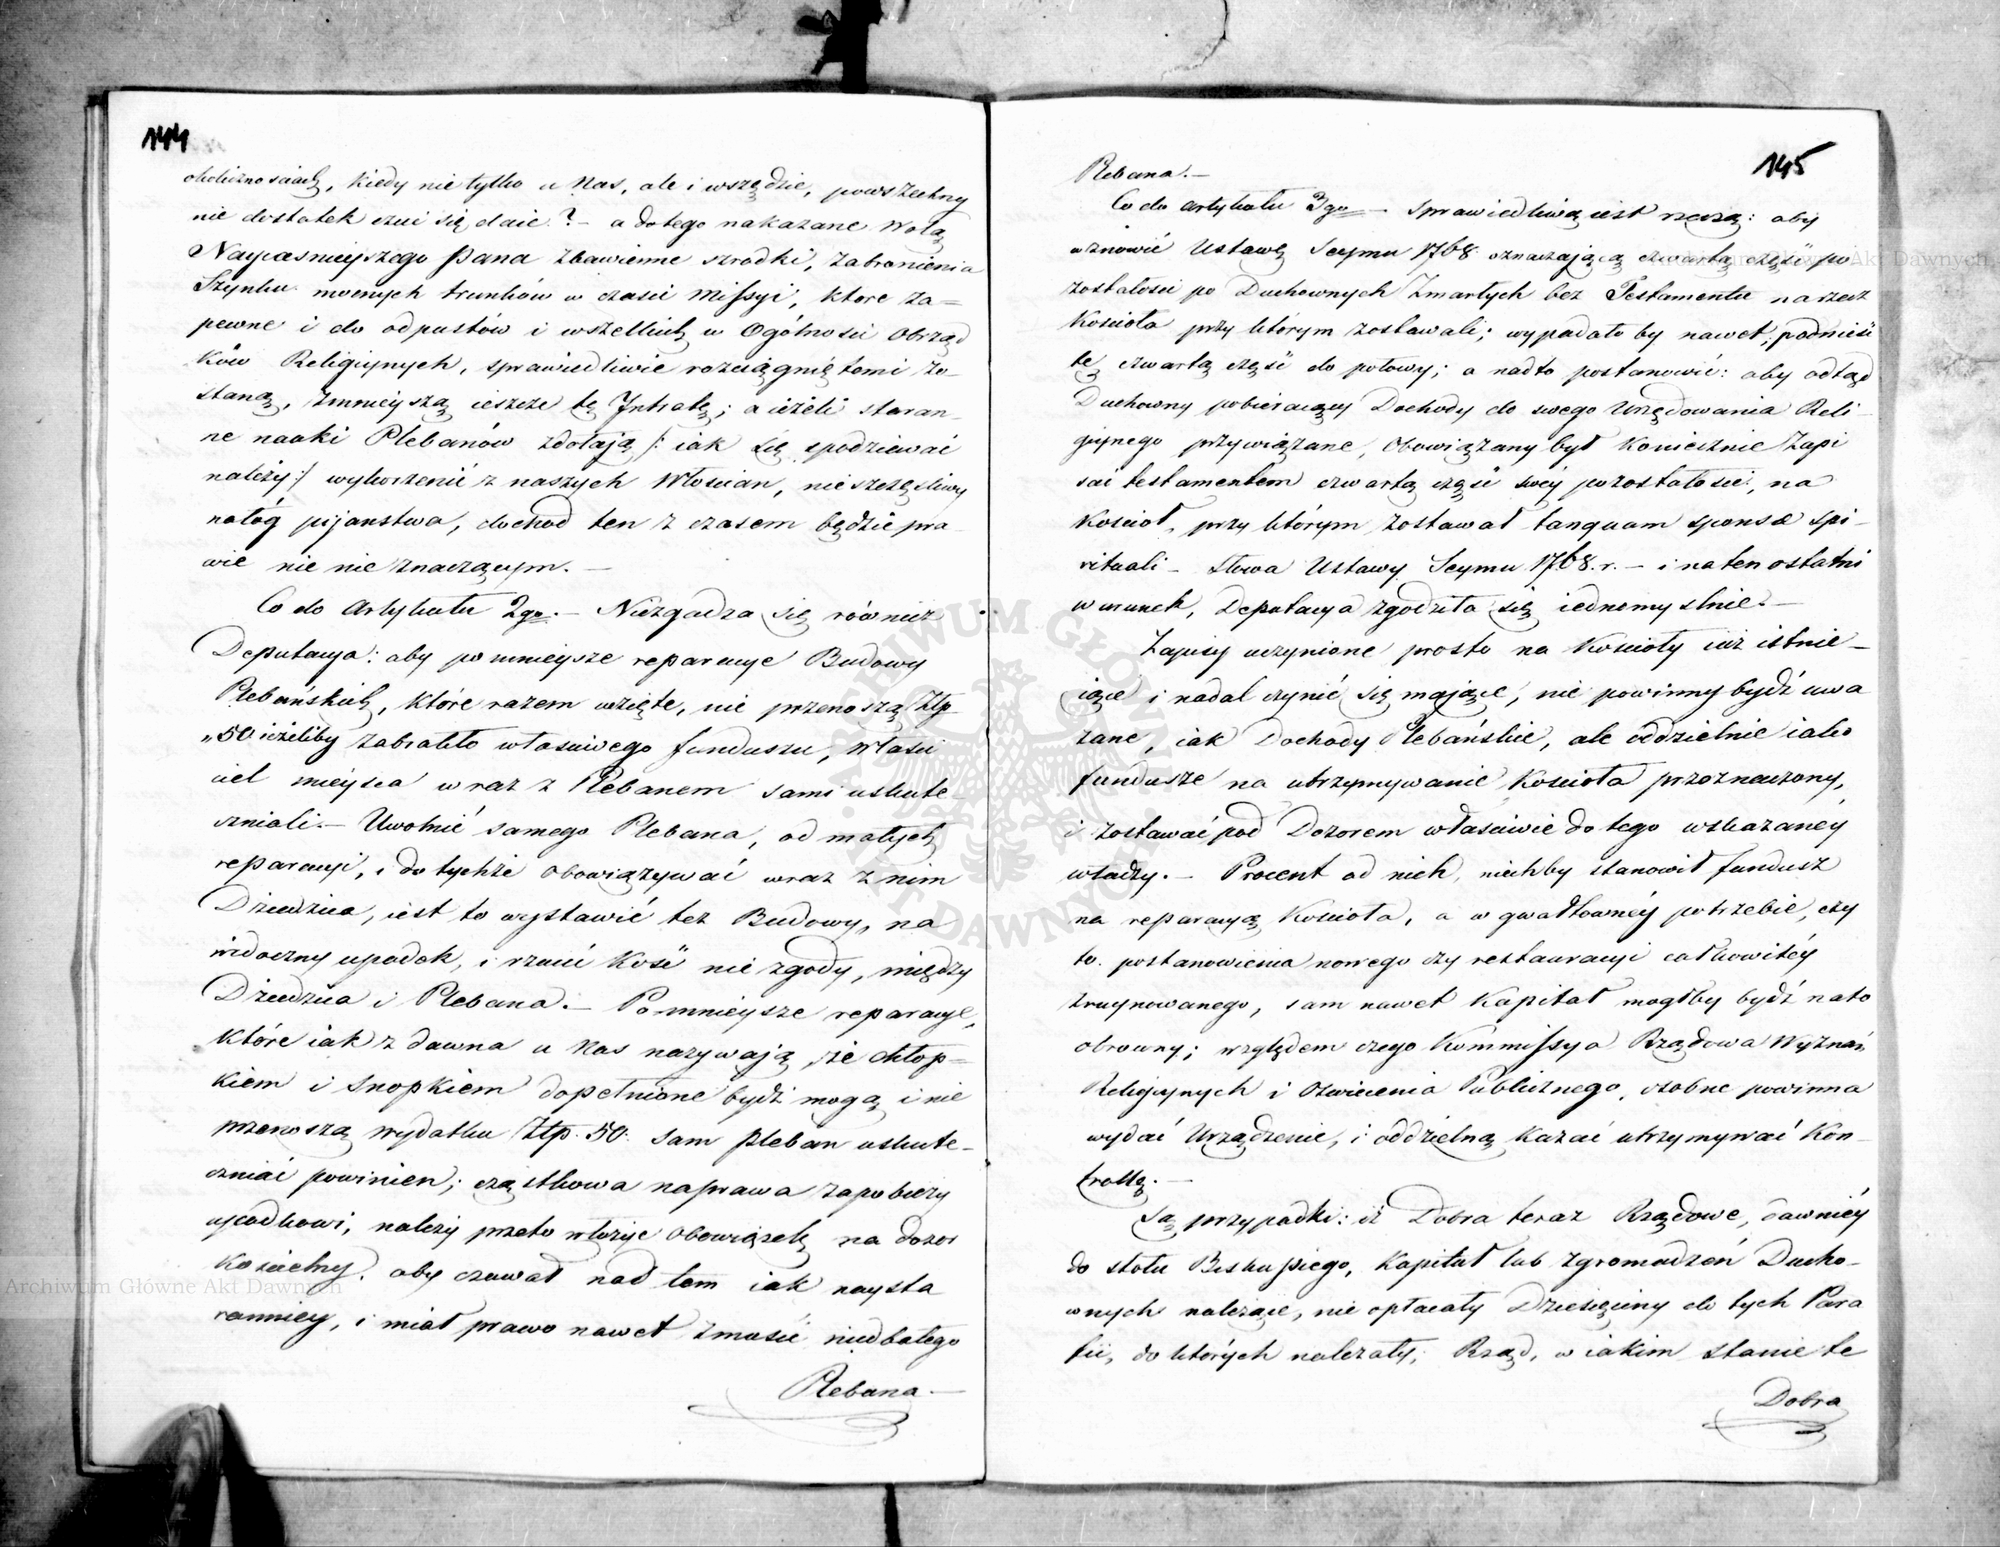 144
okolicznosciach, kiedy nie tylko u Nas, ale i wszędzie, powszechny
nie dostatek czuć się daie? – a do tego nakazane Wolą
Nayjasnieyszego Pana zbawienne srodki, zabronienia
Szynku mocnych trunków w czasie Missyi, ktore za=
pewne i do odpustów i wszelkich w Ogólnosci Obrząd
ków Religiynych, sprawiedliwie rozciągniętemi zo-
staną, zmnieyszą ieszcze tę Intratę; a ieżeli staran-
ne nauki Plebanów zdołaią /: iak się spodziewać
należy :/ wykorzenić z naszych Włościan, nieszczęsliwy
nałóg pijanstwa, dochod ten z czasem będzie pra
wie nic nie znaczącym. –
Co do Artykułu 2go. – Niezgadza się również
Deputacya: aby pomnieysze reparacye Budowy
Plebańskich, które razem wzięte, nie przenoszą Złp
„50 ieżeliby zabrakło własciwego funduszu, Własci
ciel mieysca wraz z Plebanem sami uskute-
czniali. – Uwolnić samego Plebana, od małych
reparacyi, i do tychże obowiązywać wraz z nim
Dziedzica, iest to wystawić też Budowy, na
widoczny upadek, i rzucić Kość nie zgody, między
Dziedzica i Plebana. – Pomnieysze reparacye,
które iak z dawna u Nas nazywaią, że chłop=
kiem i Snopkiem dopełnione bydź mogą i nie
przenoszą wydatku Złp. 50. sam Pleban uskute-
czniać powinien; cząstkowa naprawa zapobieży
upadkowi, należy przeto włożyć obowiązek na dozor
Kościelny, aby czuwał nad tem iak naysta
ranniey, i miał prawo nawet zmusić niedbałego
Plebana. –
145
Plebana. –
Co do artykułu 3go – sprawiedliwą iest rzeczą: aby
wznowić Ustawę Seymu 1768 oznaczaiącą czwartą część po
zostałosci po Duchownych Zmarłych bez Testamentu na rzecz
Kościoła przy którym zostawali; wypadało by nawet, podnieść
tę czwartą część do połowy; a nadto postanowić: aby odtąd
Duchowny pobieraiący Dochody do swego Urzędowania Reli-
giynego przywiązane, obowiązany był Koniecznie zapi
sać testamentem czwartą część swéy pozostałosci, na
Kościoł, przy którym zostawał tanquam sponsæ spi-
rituali – Słowa Ustawy Seymu 1768. r. – i na ten ostatni
warunek, Deputacya zgodziła się iednomyslnie. –
Zapisy uczynione prosto na Kościoły iuż istnie-
iące i nadal czynić się maiące, nie powinny bydź uwa
żane, iak Dochody Plebańskie, ale oddzielnie iako
fundusze na utrzymywanie Kościoła przeznaczony,
i zostawać pod Dozorem właściwie do tego wskazanéy
władzy. – Procent od nich, niechby stanowił fundusz
na reparacyą Kościoła, a w gwałtownéy potrzebie, czy
to postanowienia nowego czy restauracyi całkowitéy
zruynowanego, sam nawet Kapitał mogłby bydź na to
obrocony; względem czego Kommissya Rządowa Wyznań
Religiynych i Oswiecenia Publicznego, osobne powinna
wydać Urządzenie, i oddzielną kazać utrzymywać Kon-
trollę. –
Są przypadki: iż Dobra teraz Rządowe, dawniéy
do stołu Biskupiego, Kapituł lub Zgromadzeń Ducho-
wnych należące, nie opłacały Dziesięciny do tych Para
fii, do których należały; Rząd, w iakim stanie te
Dobra
ARCHIWUM GŁÓWNE AKT DAWNYCH
Archiwum Główne Akt Dawnych
Archiwum Główne Akt Dawnych